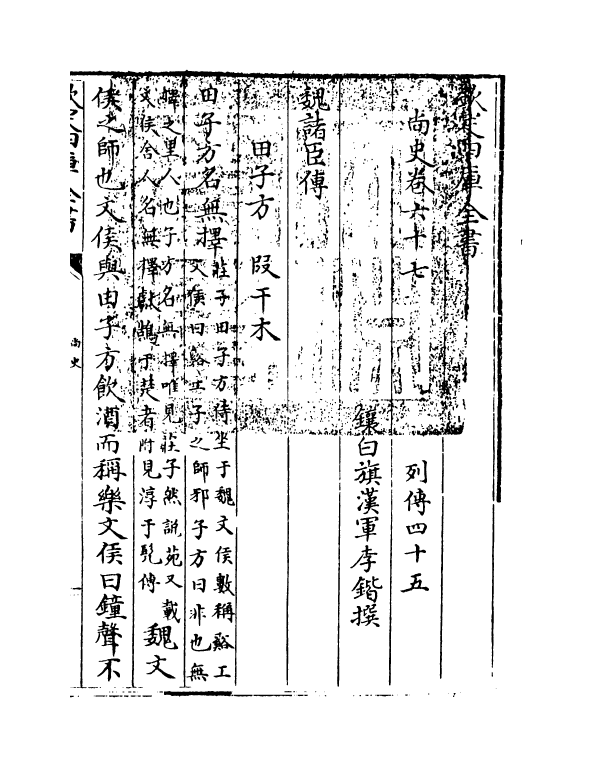 欽定四庫全書
尚史卷六十七　列傳四十五
鑲白旗漢軍李鍇撰
魏諸臣傳
田子方　段干木
田子方名無擇
莊子田子方侍坐于魏文侯數稱谿工
文侯曰谿工子之師邪子方曰非也無
擇之里人也子方名無擇唯見莊子然說苑又載
文侯舍人名無擇獻鵠于楚者附見淳于髡傳
魏文
侯之師也文侯與田子方飲酒而稱樂文侯曰鐘聲不
欽定四庫全書
尚史
一